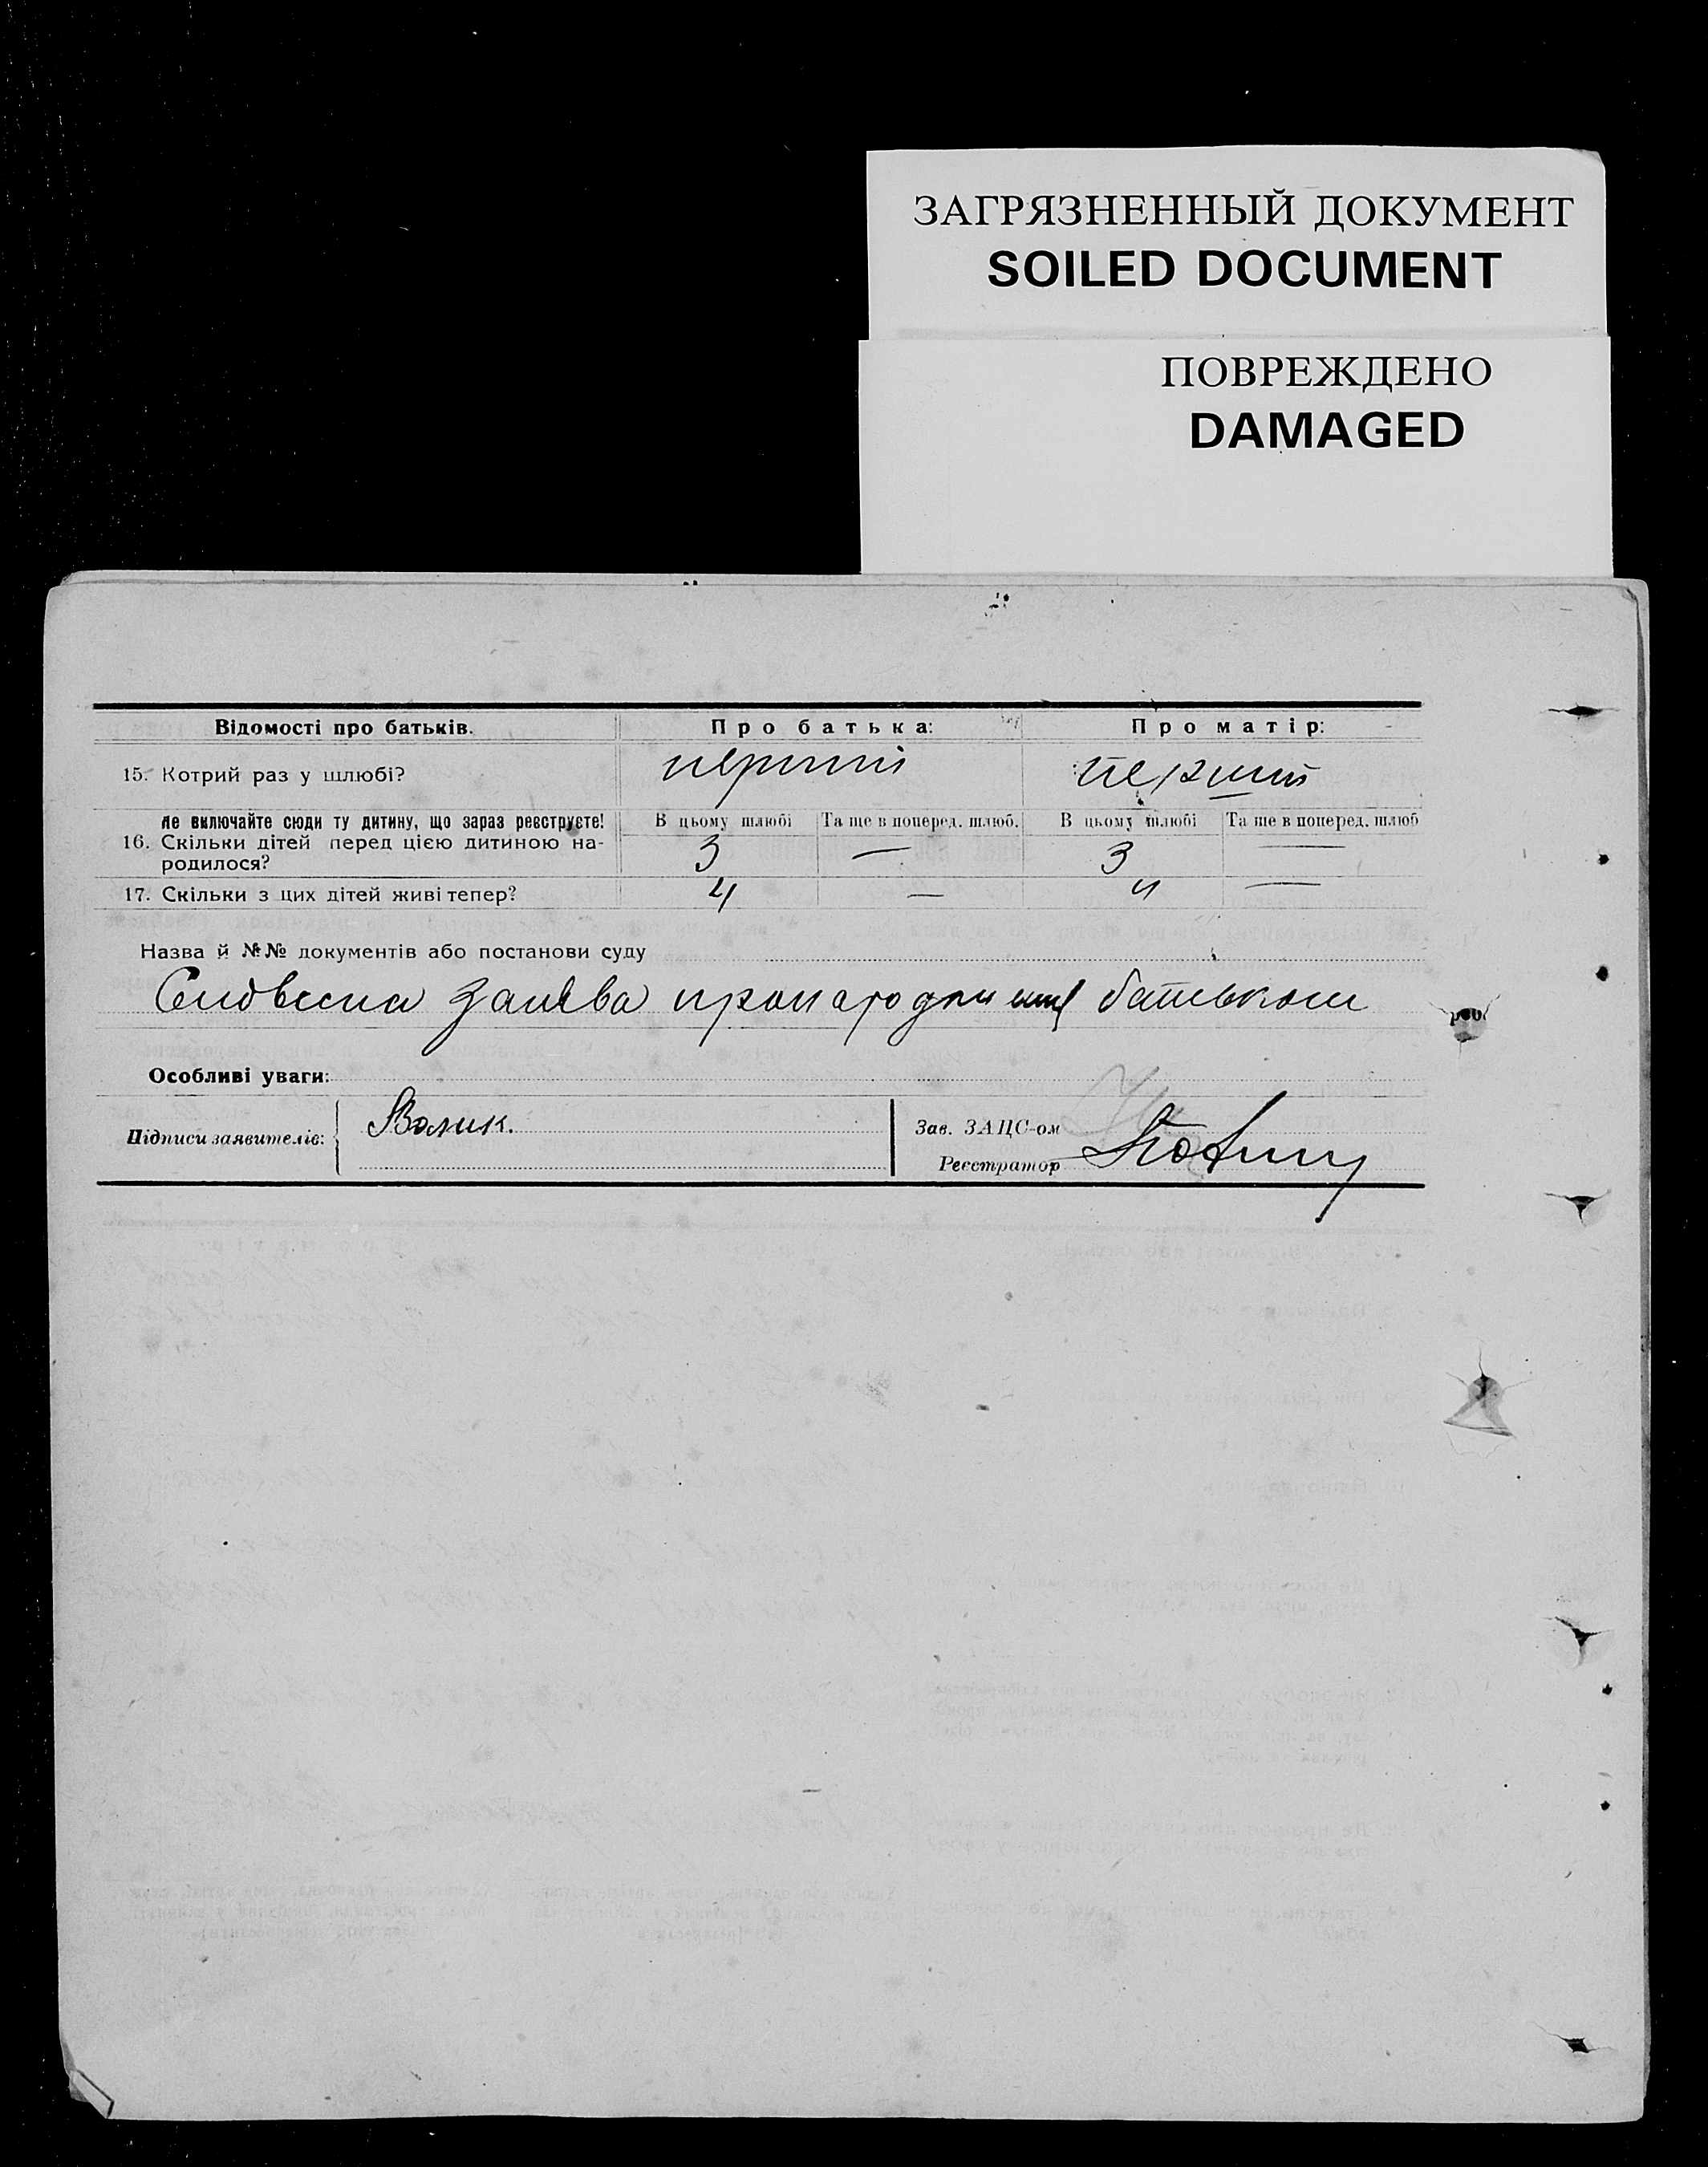 ЗАГРЯЗНЕННЫЙ ДОКУМЕНТ
SOILED DOCUMENT
ПОВРЕЖДЕНО
DAMAGED
Відомості про батьків. Про батька: Про матір:
15. Котрий раз у шлюбі? перший перший
не включайте сюди ту дитину, що зараз реєструєте! В цьому шлюбі Та ще в поперед. шлюб. В цьому шлюбі Та ще в поперед. шлюб
16. Скільки дітей перед цією дитиною на- 3 — 3 —
родилося?
17. Скільки з цих дітей живі тепер? 4 — 4 —
Назва й №№ документів або постанови суду
Словесна заява про народження батьком
Особливі уваги:
Підписи заявителів: Волик.
Зав. ЗАЦС-ом
Реєстратор